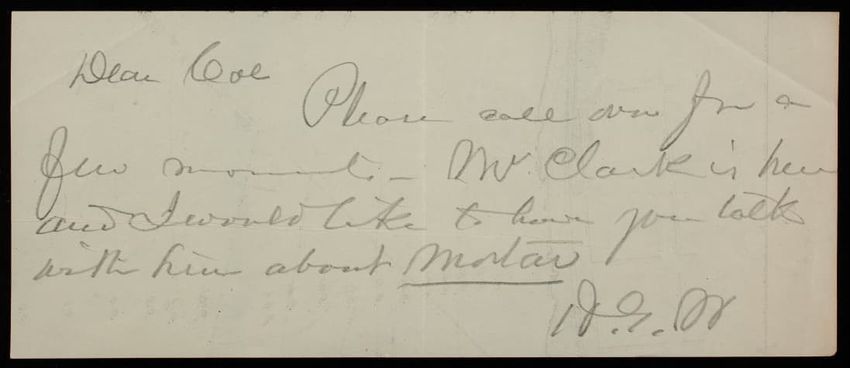 Dear Col
Please call over for a
few moments - Mr. Clark is here
and I would like to have you talk
with him about Mortar